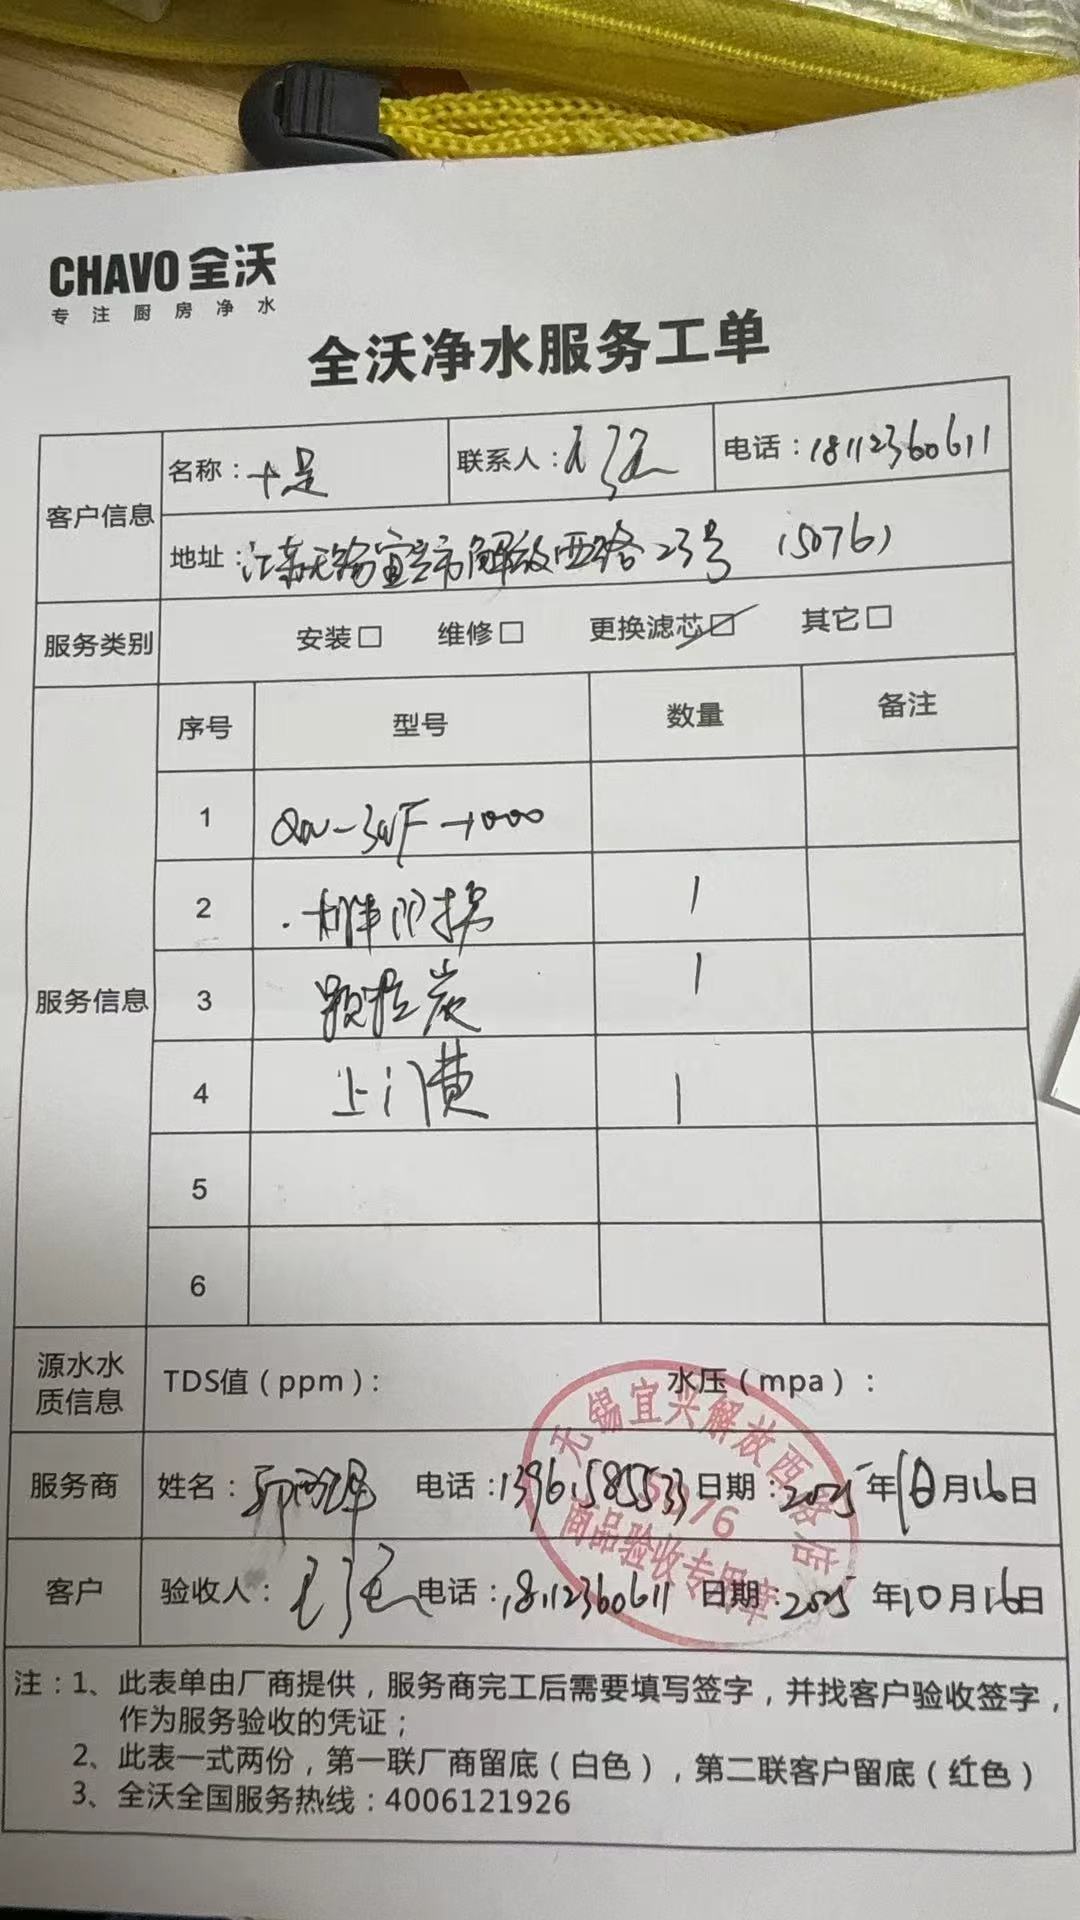 CHAVO 全沃
专注厨房净水
全沃净水服务工单
客户信息
名称： 联系人： 电话：18112360611
地址：江苏无锡宜兴市解放西路23号 (5076)
服务类别 安装□ 维修□ 更换滤芯☑ 其它□
服务信息
序号 型号 数量 备注
1
2 1
3 颗粒炭 1
4 上门费 1
5
6
源水水质信息 TDS值（ppm）： 水压（mpa）：
服务商 姓名： 电话：13961585533 日期：2025年10月16日
客户 验收人： 电话：18112360611 日期：2025年10月16日
无锡宜兴解放西路店
5076
商品验收专用章
注：1、此表单由厂商提供，服务商完工后需要填写签字，并找客户验收签字，
作为服务验收的凭证；
2、此表一式两份，第一联厂商留底（白色），第二联客户留底（红色）
3、全沃全国服务热线：4006121926